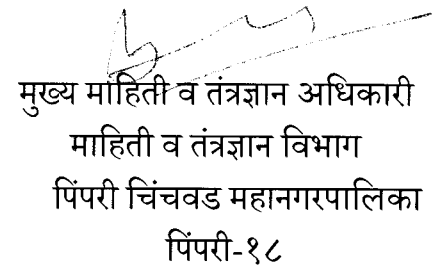 मुख्य माहिती व तंत्रज्ञान अधिकारी
माहिती व तंत्रज्ञान विभाग
पिंपरी चिंचवड महानगरपालिका
पिंपरी-१८